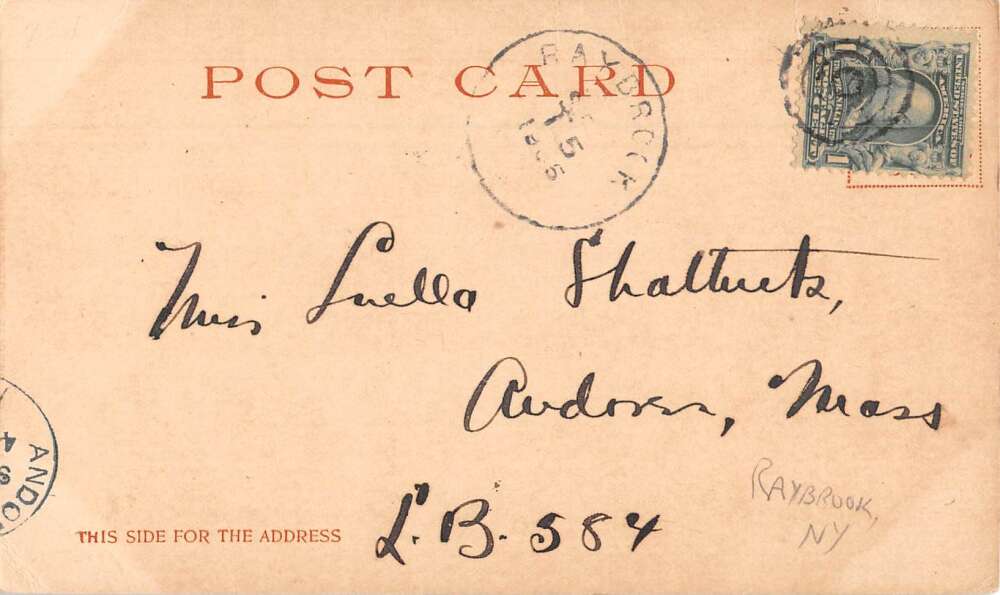 POST CARD
RAYBROOK
5
Miss Luella Shattuck,
Andover, Mass
L.B. 584
THIS SIDE FOR THE ADDRESS
RAYBROOK,
NY
ANDO